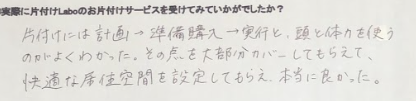 実際に片付けLaboのお片付けサービスを受けてみていかがでしたか？
片付けには計画→準備購入→実行と、頭と体力を使う
のがよくわかった。その点を大部分カバーしてもらえて、
快適な居住空間を設定してもらえ、本当に良かった。